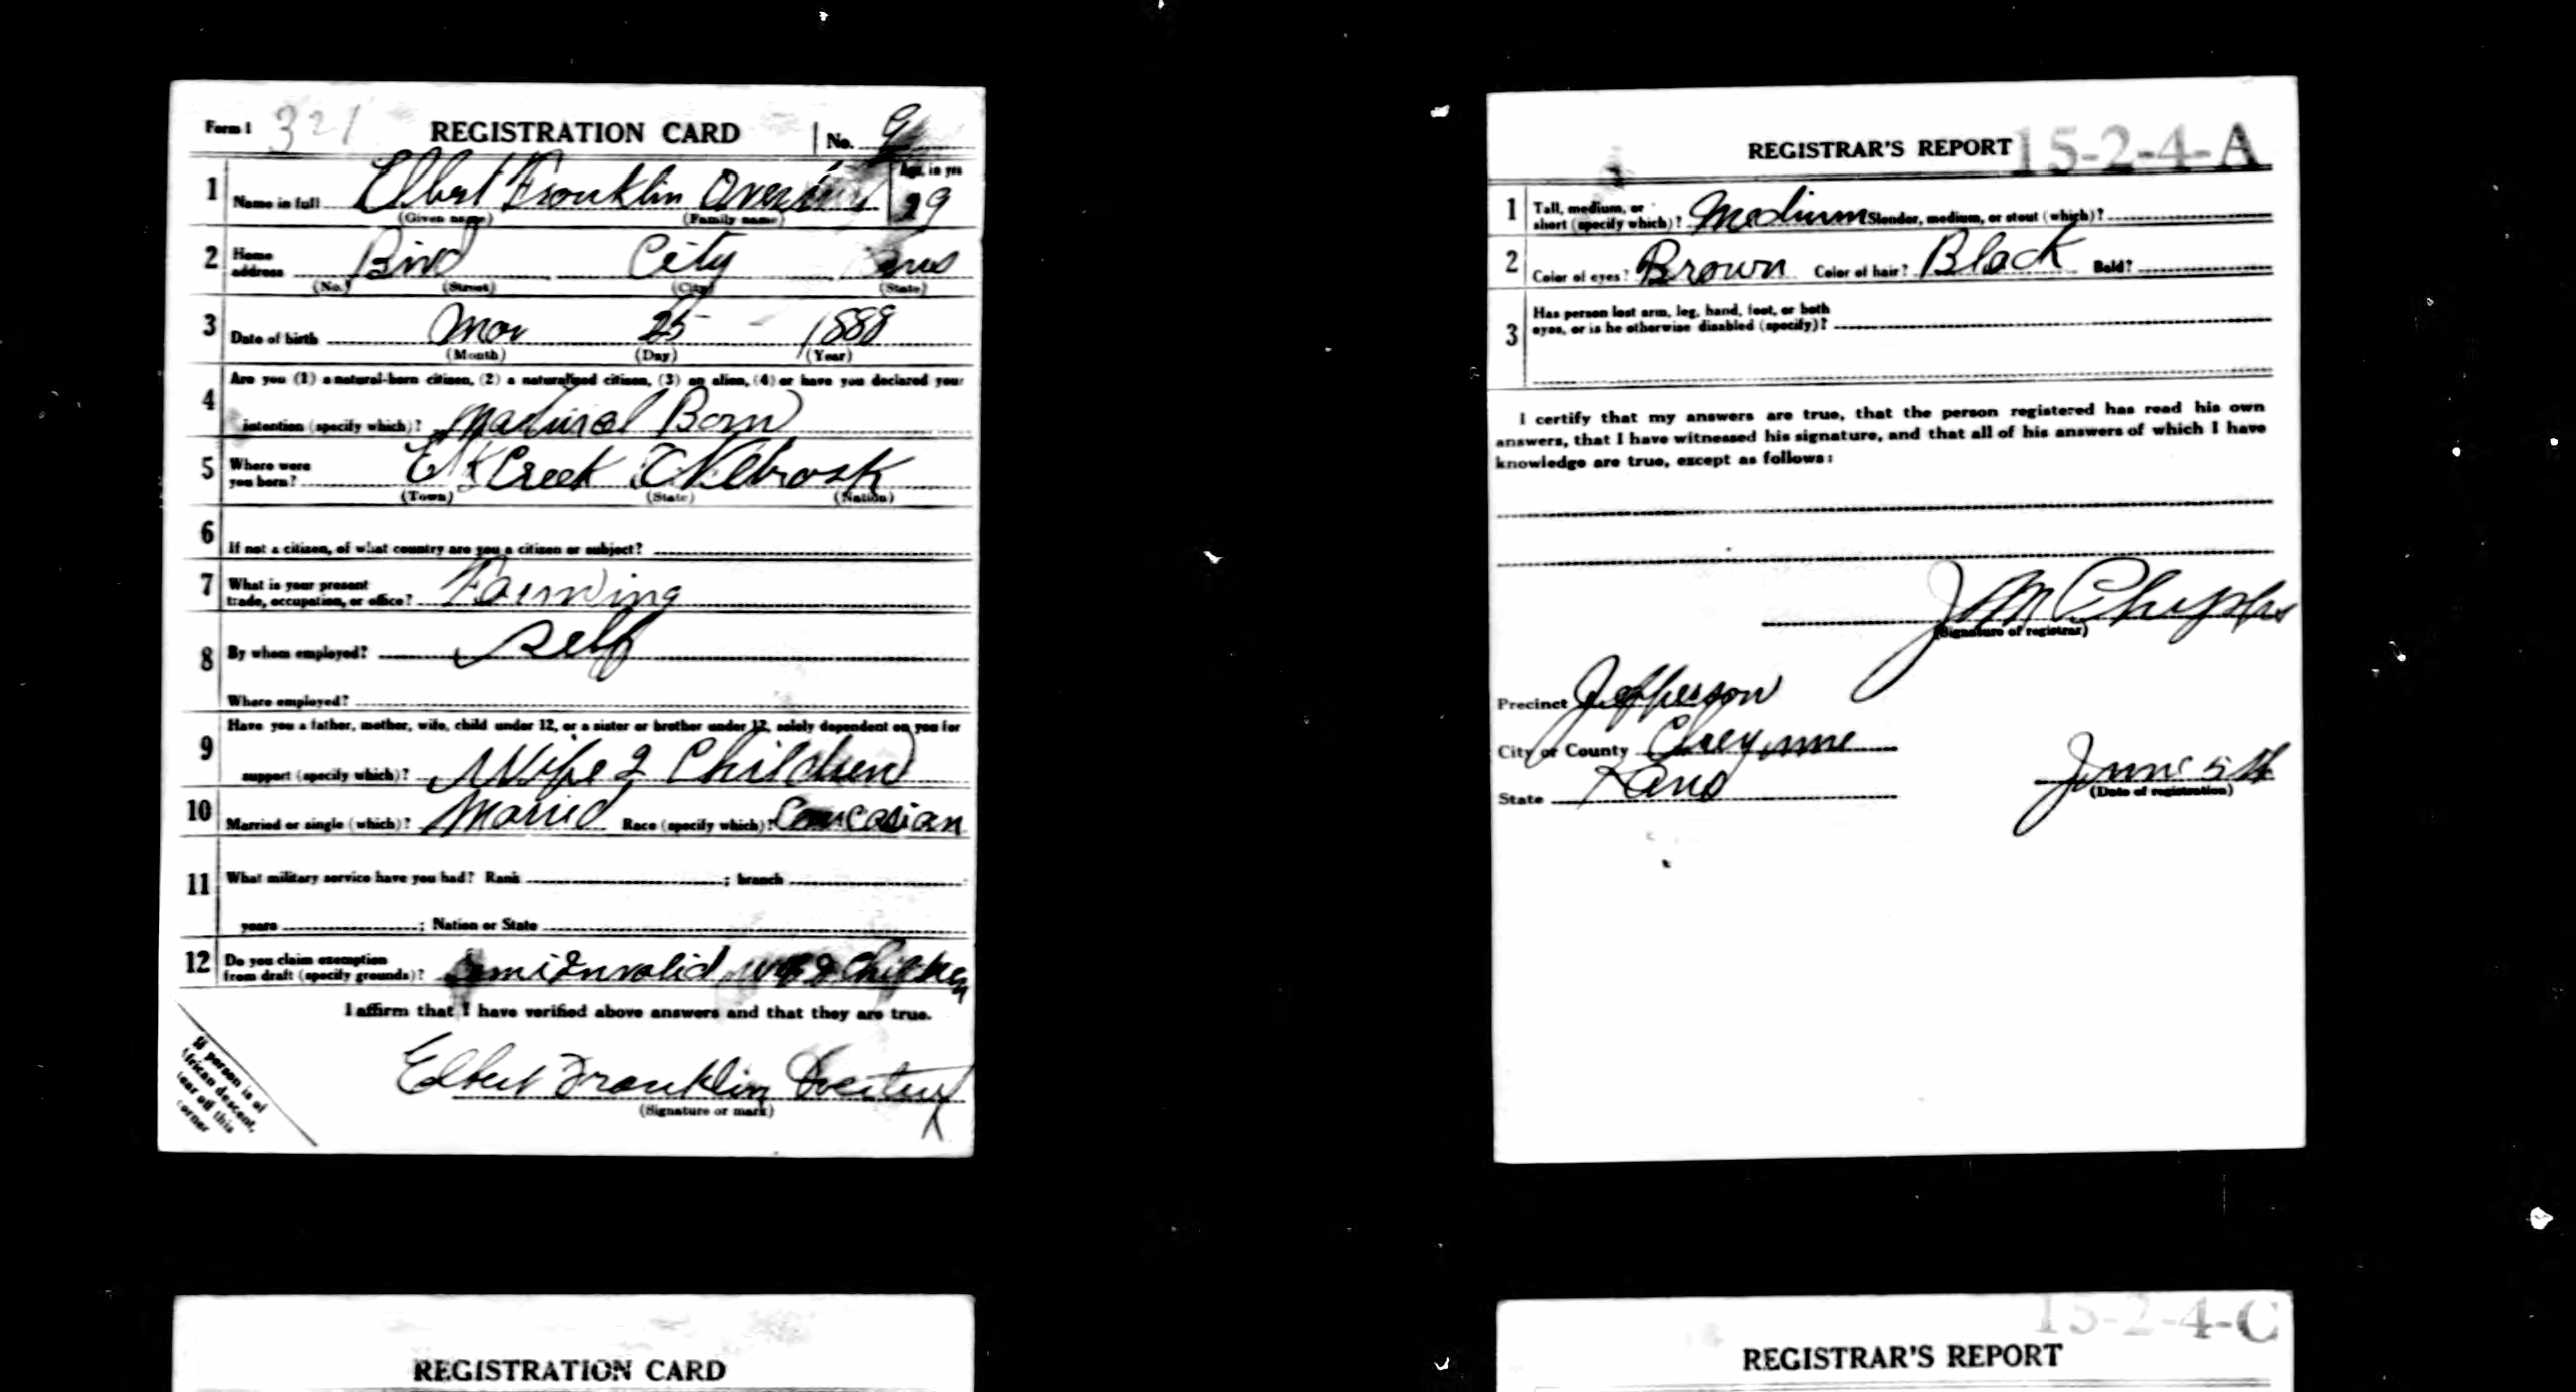 Form 1 321 REGISTRATION CARD No. 9
1 Name in full Elbert Franklin Age, in yrs 29
(Given name) (Family name)
2 Home address Bird City
(No.) (Street) (City) (State)
3 Date of birth Mar 25 - 1888
(Month) (Day) (Year)
4 Are you (1) a natural-born citizen, (2) a naturalized citizen, (3) an alien, (4) or have you declared your
intention (specify which)? Natural Born
5 Where were you born? Elk Creek Nebrask
(Town) (State) (Nation)
6 If not a citizen, of what country are you a citizen or subject?
7 What is your present trade, occupation, or office? Farming
8 By whom employed? Self
Where employed?
9 Have you a father, mother, wife, child under 12, or a sister or brother under 12, solely dependent on you for
support (specify which)? Wife 2 Children
10 Married or single (which)? Married Race (specify which)? Caucasian
11 What military service have you had? Rank ; branch
years ; Nation or State
12 Do you claim exemption from draft (specify grounds)? Invalid 2 Children
I affirm that I have verified above answers and that they are true.
Elbert Franklin Overturf
(Signature or mark)
If person is of
African descent,
tear off this
corner
REGISTRAR'S REPORT 15-2-4-A
1 Tall, medium, or short (specify which)? Medium Slender, medium, or stout (which)?
2 Color of eyes? Brown Color of hair? Black Bald?
3 Has person lost arm, leg, hand, foot, or both
eyes, or is he otherwise disabled (specify)?
I certify that my answers are true, that the person registered has read his own
answers, that I have witnessed his signature, and that all of his answers of which I have
knowledge are true, except as follows:
J M
(Signature of registrar)
Precinct Jefferson
City or County Cheyenne
State Kans June 5th
(Date of registration)
REGISTRATION CARD
15-2-4-C
REGISTRAR'S REPORT